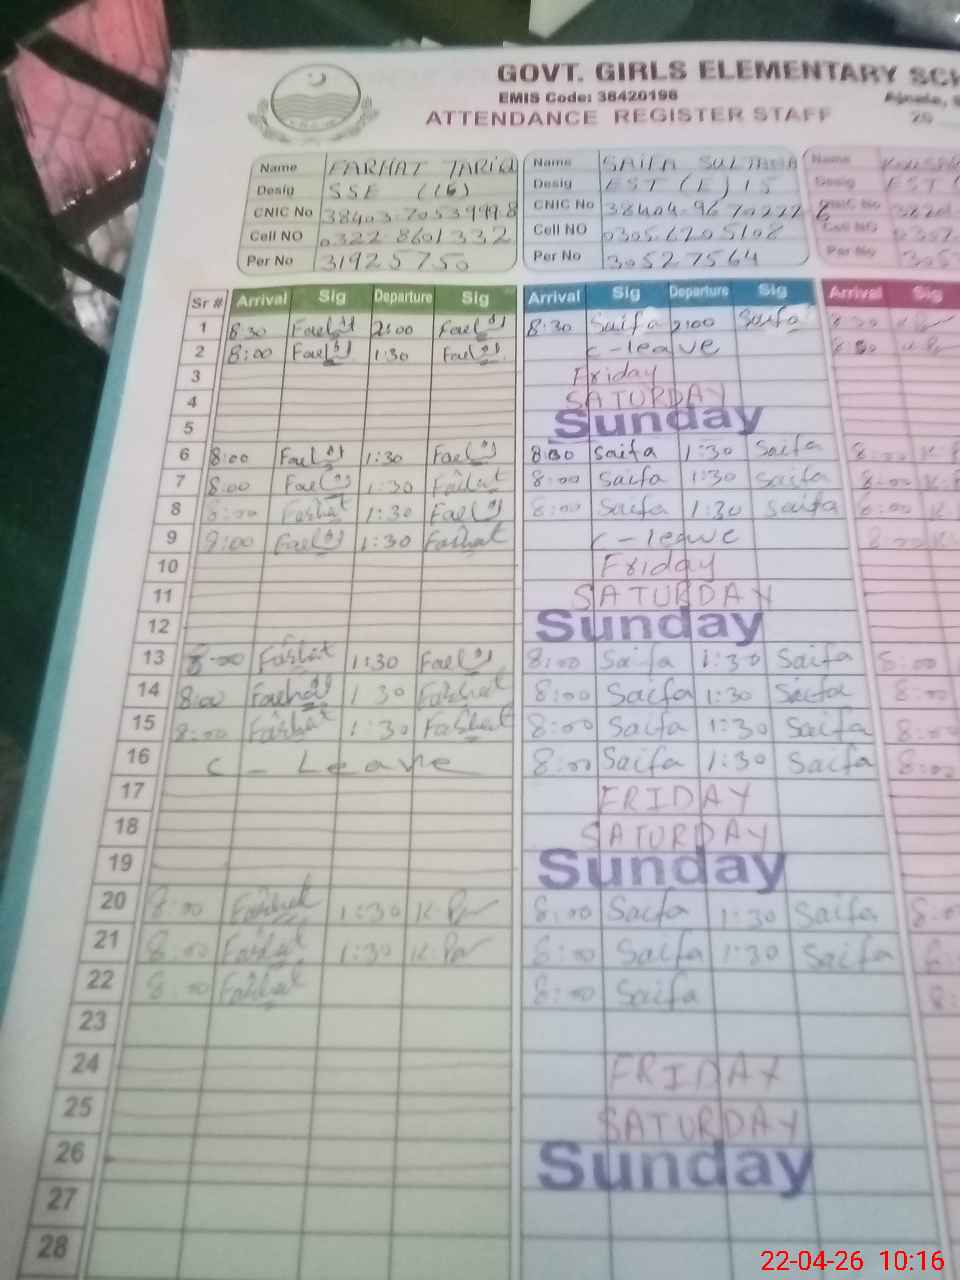 GOVT. GIRLS ELEMENTARY SCH
EMIS Code: 38420198
ATTENDANCE REGISTER STAFF 20
Name FARHAT TARIQ Name SAIFA SULTANA Name
Desig SSE (16) Desig EST (E) 15 Desig EST
CNIC No 38403-7053999-8 CNIC No 38404-9670222 6 CNIC No
Cell NO 0322-8601332 Cell NO 0305-6205108 Cell NO
Per No 31925750 Per No 30527564 Per No
Sr # Arrival Sig Departure Sig Arrival Sig Departure Sig Arrival Sig
1 8:30 2:00 8:30 Saifa 2:00 Saifa
2 8:00 1:30 C-leave
3 Friday
4 SATURDAY
5 Sunday
6 8:00 1:30 Saifa 1:30 Saifa
7 8:00 1:30 Farhat 8:00 Saifa 1:30 Saifa
8 8:00 Farhat 1:30 8:00 Saifa 1:30 Saifa
9 1:30 Farhat C-leave
10 Friday
11 SATURDAY
12 Sunday
13 8:00 Farhat 1:30 8:00 Saifa 1:30 Saifa 8:00
14 8:00 1 30 Farhat 8:00 Saifa 1:30 Saifa 8:00
15 8:00 Farhat 1:30 Farhat 8:00 Saifa 1:30 Saifa 8:00
16 C - Leave 8:00 Saifa 1:30 Saifa 8:00
17 FRIDAY
18 SATURDAY
19 Sunday
20 8:00 Farhat 1:30 8:00 Saifa 1:30 Saifa
21 8:00 Farhat 1:30 8:00 Saifa 1:30 Saifa
22 8:00 Farhat 8:00 Saifa
23
24 FRIDAY
25 SATURDAY
26 Sunday
27
28
22-04-26 10:16